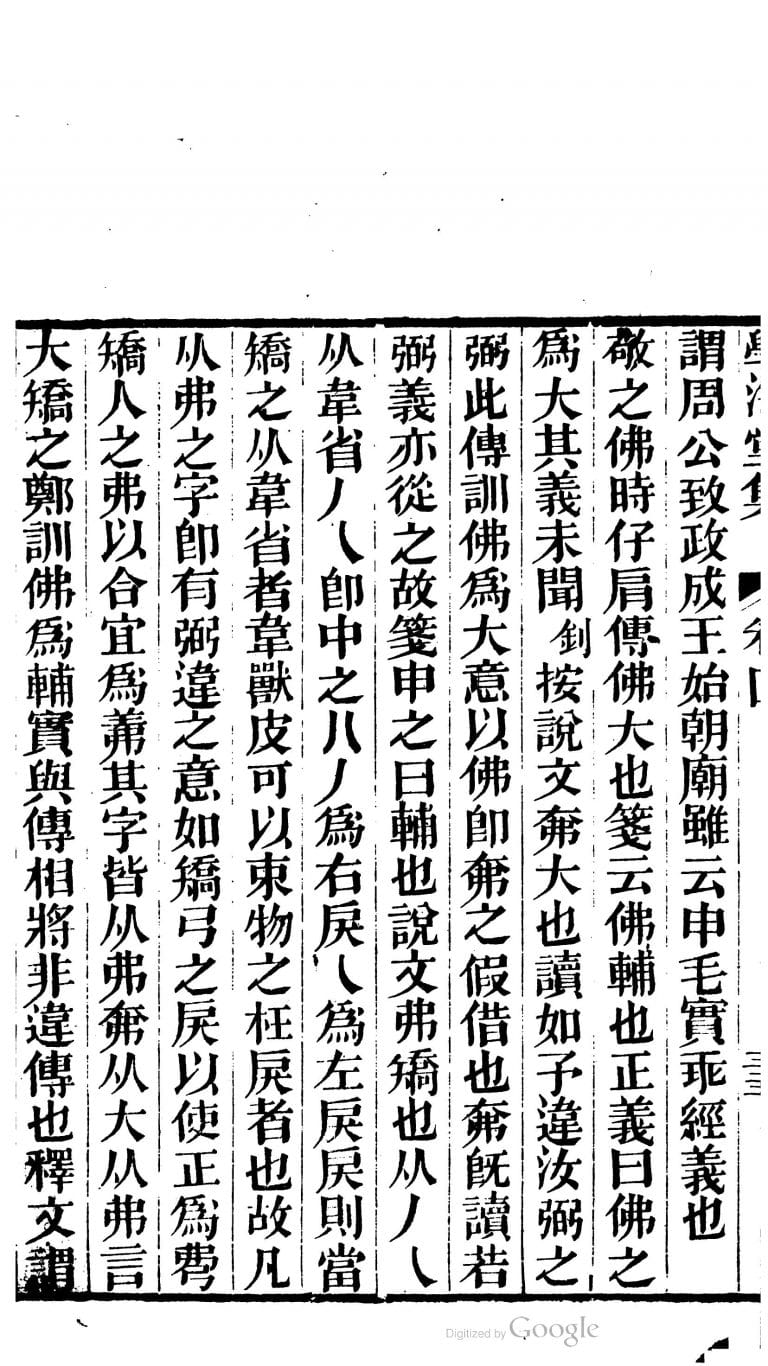 學海堂集 卷四 三三
謂周公致政成王始朝廟雖云申毛實乖經義也
敬之佛時仔肩傳佛大也箋云佛輔也正義曰佛之
爲大其義未聞釗按說文奫大也讀如予違汝弼之
弼此傳訓佛爲大意以佛卽之假借也旣讀若
弼義亦從之故箋申之曰輔也說文弗矯也从丿乀
从韋省丿乀卽中之八丿爲右戾乀爲左戾戾則當
矯之从韋省者韋獸皮可以束物之枉戾者也故凡
从弗之字卽有弼違之意如矯弓之戾以使正爲
矯人之弗以合宜爲其字皆从弗从大从弗言
大矯之鄭訓佛爲輔實與傳相將非違傳也釋文謂
Digitized by Google